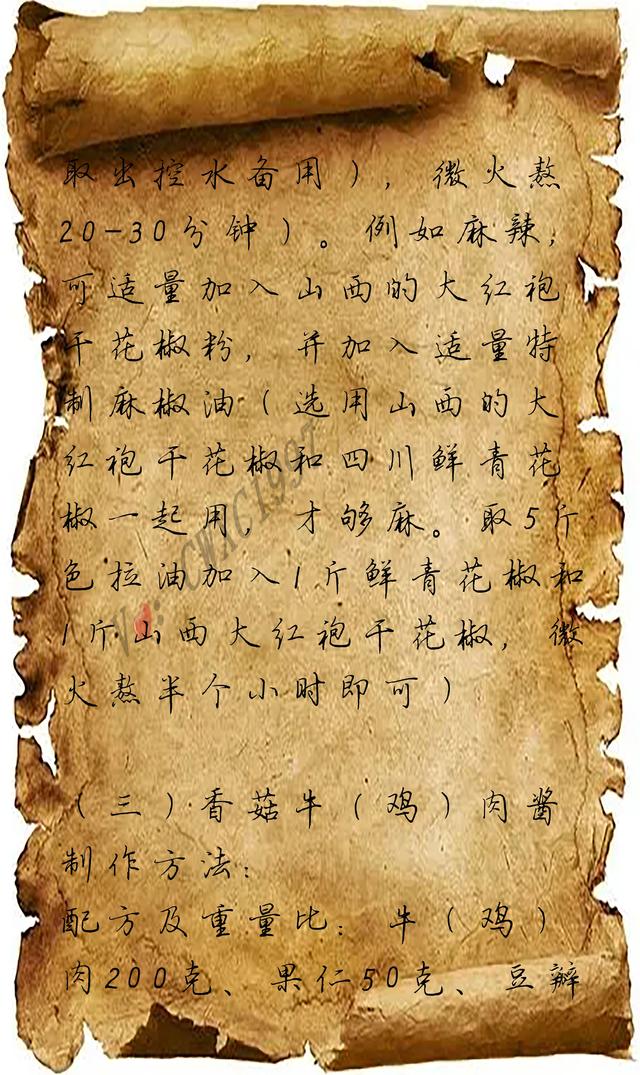 取出控水备用），微火熬
20-30分钟）。例如麻辣，
可适量加入山西的大红袍
干花椒粉，并加入适量特
制麻椒油（选用山西的大
红袍干花椒和四川鲜青花
椒一起用 才够麻。取5斤
色拉油加入1斤鲜青花椒和
1斤山西大红袍干花椒，微
火熬半个小时即可）
（三）香菇牛（鸡）肉酱
制作方法：
配方及重量比：牛（鸡）
肉200克、果仁50克、豆瓣